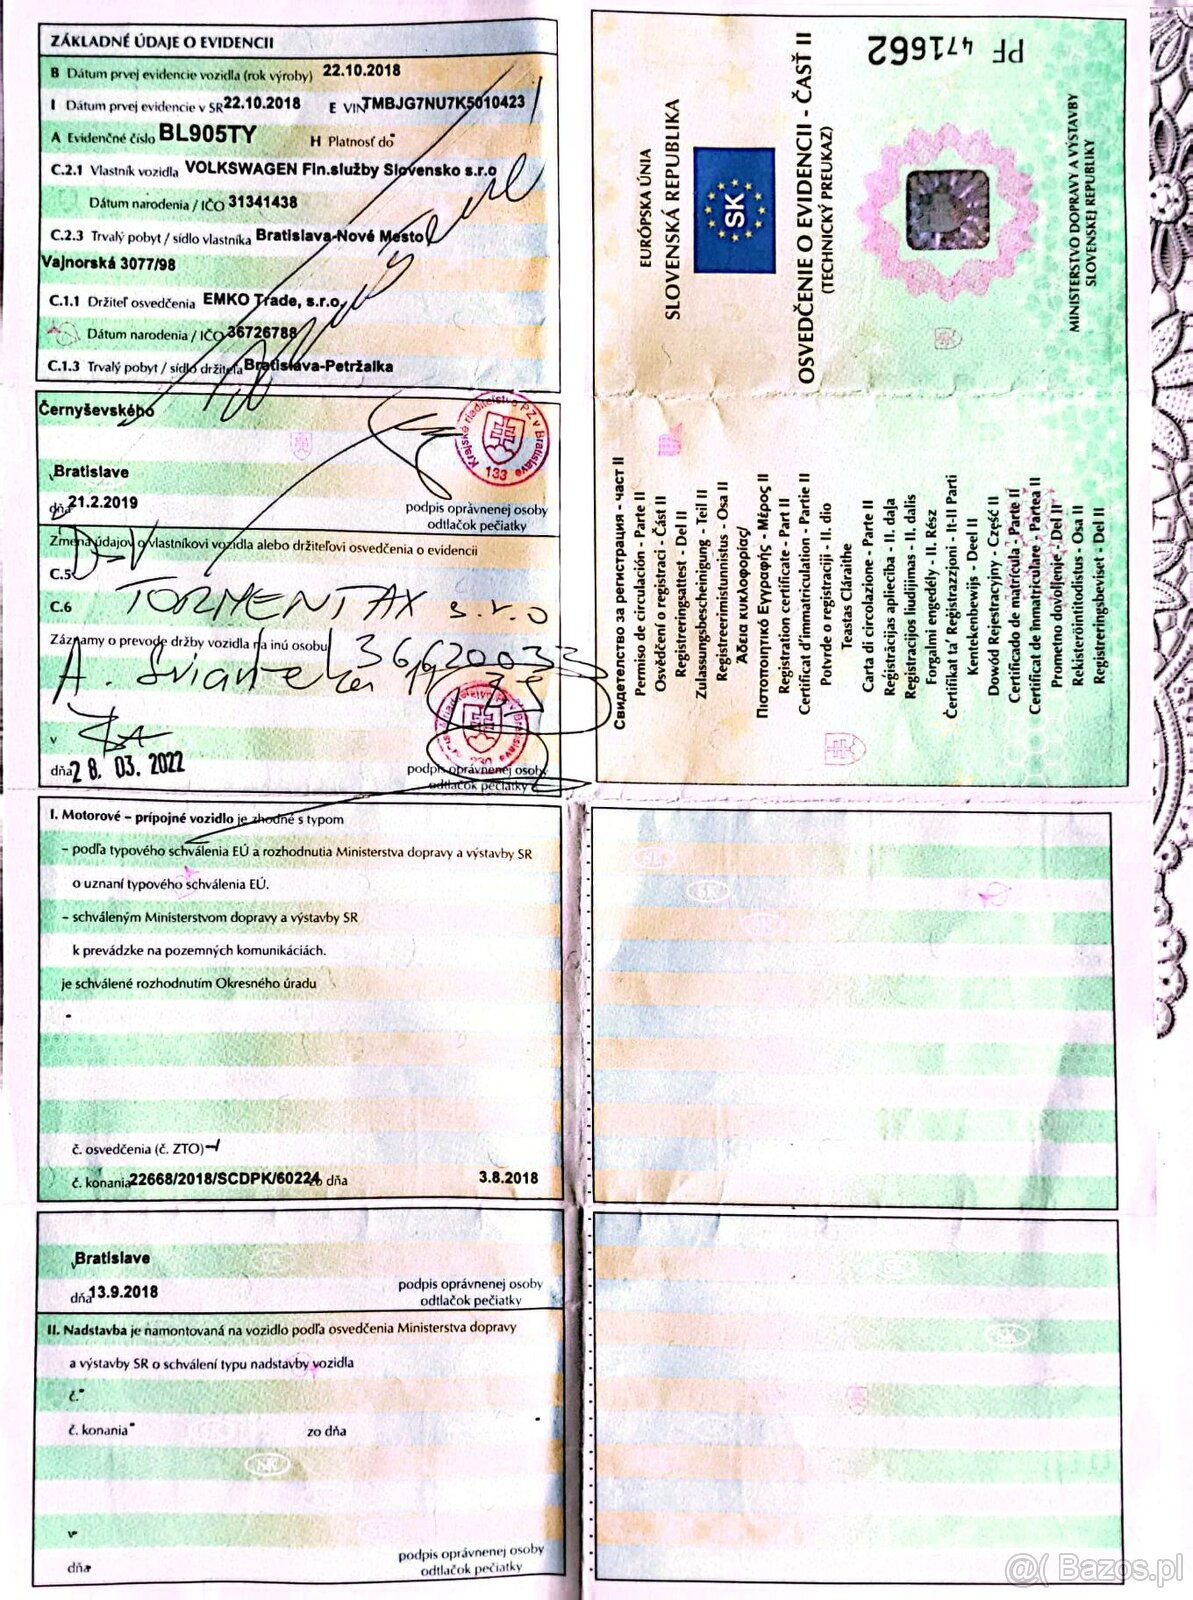 ZÁKLADNÉ ÚDAJE O EVIDENCII
B Dátum prvej evidencie vozidla (rok výroby) 22.10.2018
I Dátum prvej evidencie v SR 22.10.2018 E VIN TMBJG7NU7K5010423
A Evidenčné číslo BL905TY H Platnosť do -
C.2.1 Vlastník vozidla VOLKSWAGEN Fin.služby Slovensko s.r.o
Dátum narodenia / IČO 31341438
C.2.3 Trvalý pobyt / sídlo vlastníka Bratislava-Nové Mesto
Vajnorská 3077/98
C.1.1 Držiteľ osvedčenia EMKO Trade, s.r.o.
Dátum narodenia / IČO 36726788
C.1.3 Trvalý pobyt / sídlo držiteľa Bratislava-Petržalka
Černyševského
v Bratislave
dňa 21.2.2019
podpis oprávnenej osoby
odtlačok pečiatky
Krajské riaditeľstvo PZ v Bratislave
133
Zmena údajov o vlastníkovi vozidla alebo držiteľovi osvedčenia o evidencii
C.5
C.6 TORMENTAX s.r.o
Záznamy o prevode držby vozidla na inú osobu 36620033
A.
v BA
dňa 28. 03. 2022
podpis oprávnenej osoby
odtlačok pečiatky
I. Motorové – prípojné vozidlo je zhodné s typom
– podľa typového schválenia EÚ a rozhodnutia Ministerstva dopravy a výstavby SR
o uznaní typového schválenia EÚ.
– schváleným Ministerstvom dopravy a výstavby SR
k prevádzke na pozemných komunikáciách.
je schválené rozhodnutím Okresného úradu
-
č. osvedčenia (č. ZTO) -/
č. konania 22668/2018/SCDPK/60224 zo dňa 3.8.2018
v Bratislave
dňa 13.9.2018
podpis oprávnenej osoby
odtlačok pečiatky
II. Nadstavba je namontovaná na vozidlo podľa osvedčenia Ministerstva dopravy
a výstavby SR o schválení typu nadstavby vozidla
č. -
č. konania - zo dňa -
v -
dňa -
podpis oprávnenej osoby
odtlačok pečiatky
PF 471662
EURÓPSKA ÚNIA
SLOVENSKÁ REPUBLIKA
SK
OSVEDČENIE O EVIDENCII - ČASŤ II
(TECHNICKÝ PREUKAZ)
MINISTERSTVO DOPRAVY A VÝSTAVBY
SLOVENSKEJ REPUBLIKY
Свидетелство за регистрация - част II
Permiso de circulación - Parte II
Osvědčení o registraci - Část II
Registreringsattest - Del II
Zulassungsbescheinigung - Teil II
Registreerimistunnistus - Osa II
Άδεια κυκλοφορίας/
Πιστοποιητικό Εγγραφής - Μέρος II
Registration certificate - Part II
Certificat d'immatriculation - Partie II
Potvrde o registraciji - II. dio
Teastas Cláraithe
Carta di circolazione - Parte II
Reģistrācijas apliecība - II. daļa
Registracijos liudijimas - II. dalis
Forgalmi engedély - II. Rész
Ċertifikat ta' Reġistrazzjoni - II-II Parti
Kentekenbewijs - Deel II
Dowód Rejestracyjny - Część II
Certificado de matrícula - Parte II
Certificat de înmatriculare - Partea II
Prometno dovoljenje - Del II
Rekisteröintitodistus - Osa II
Registreringsbeviset - Del II
@( Bazos.pl